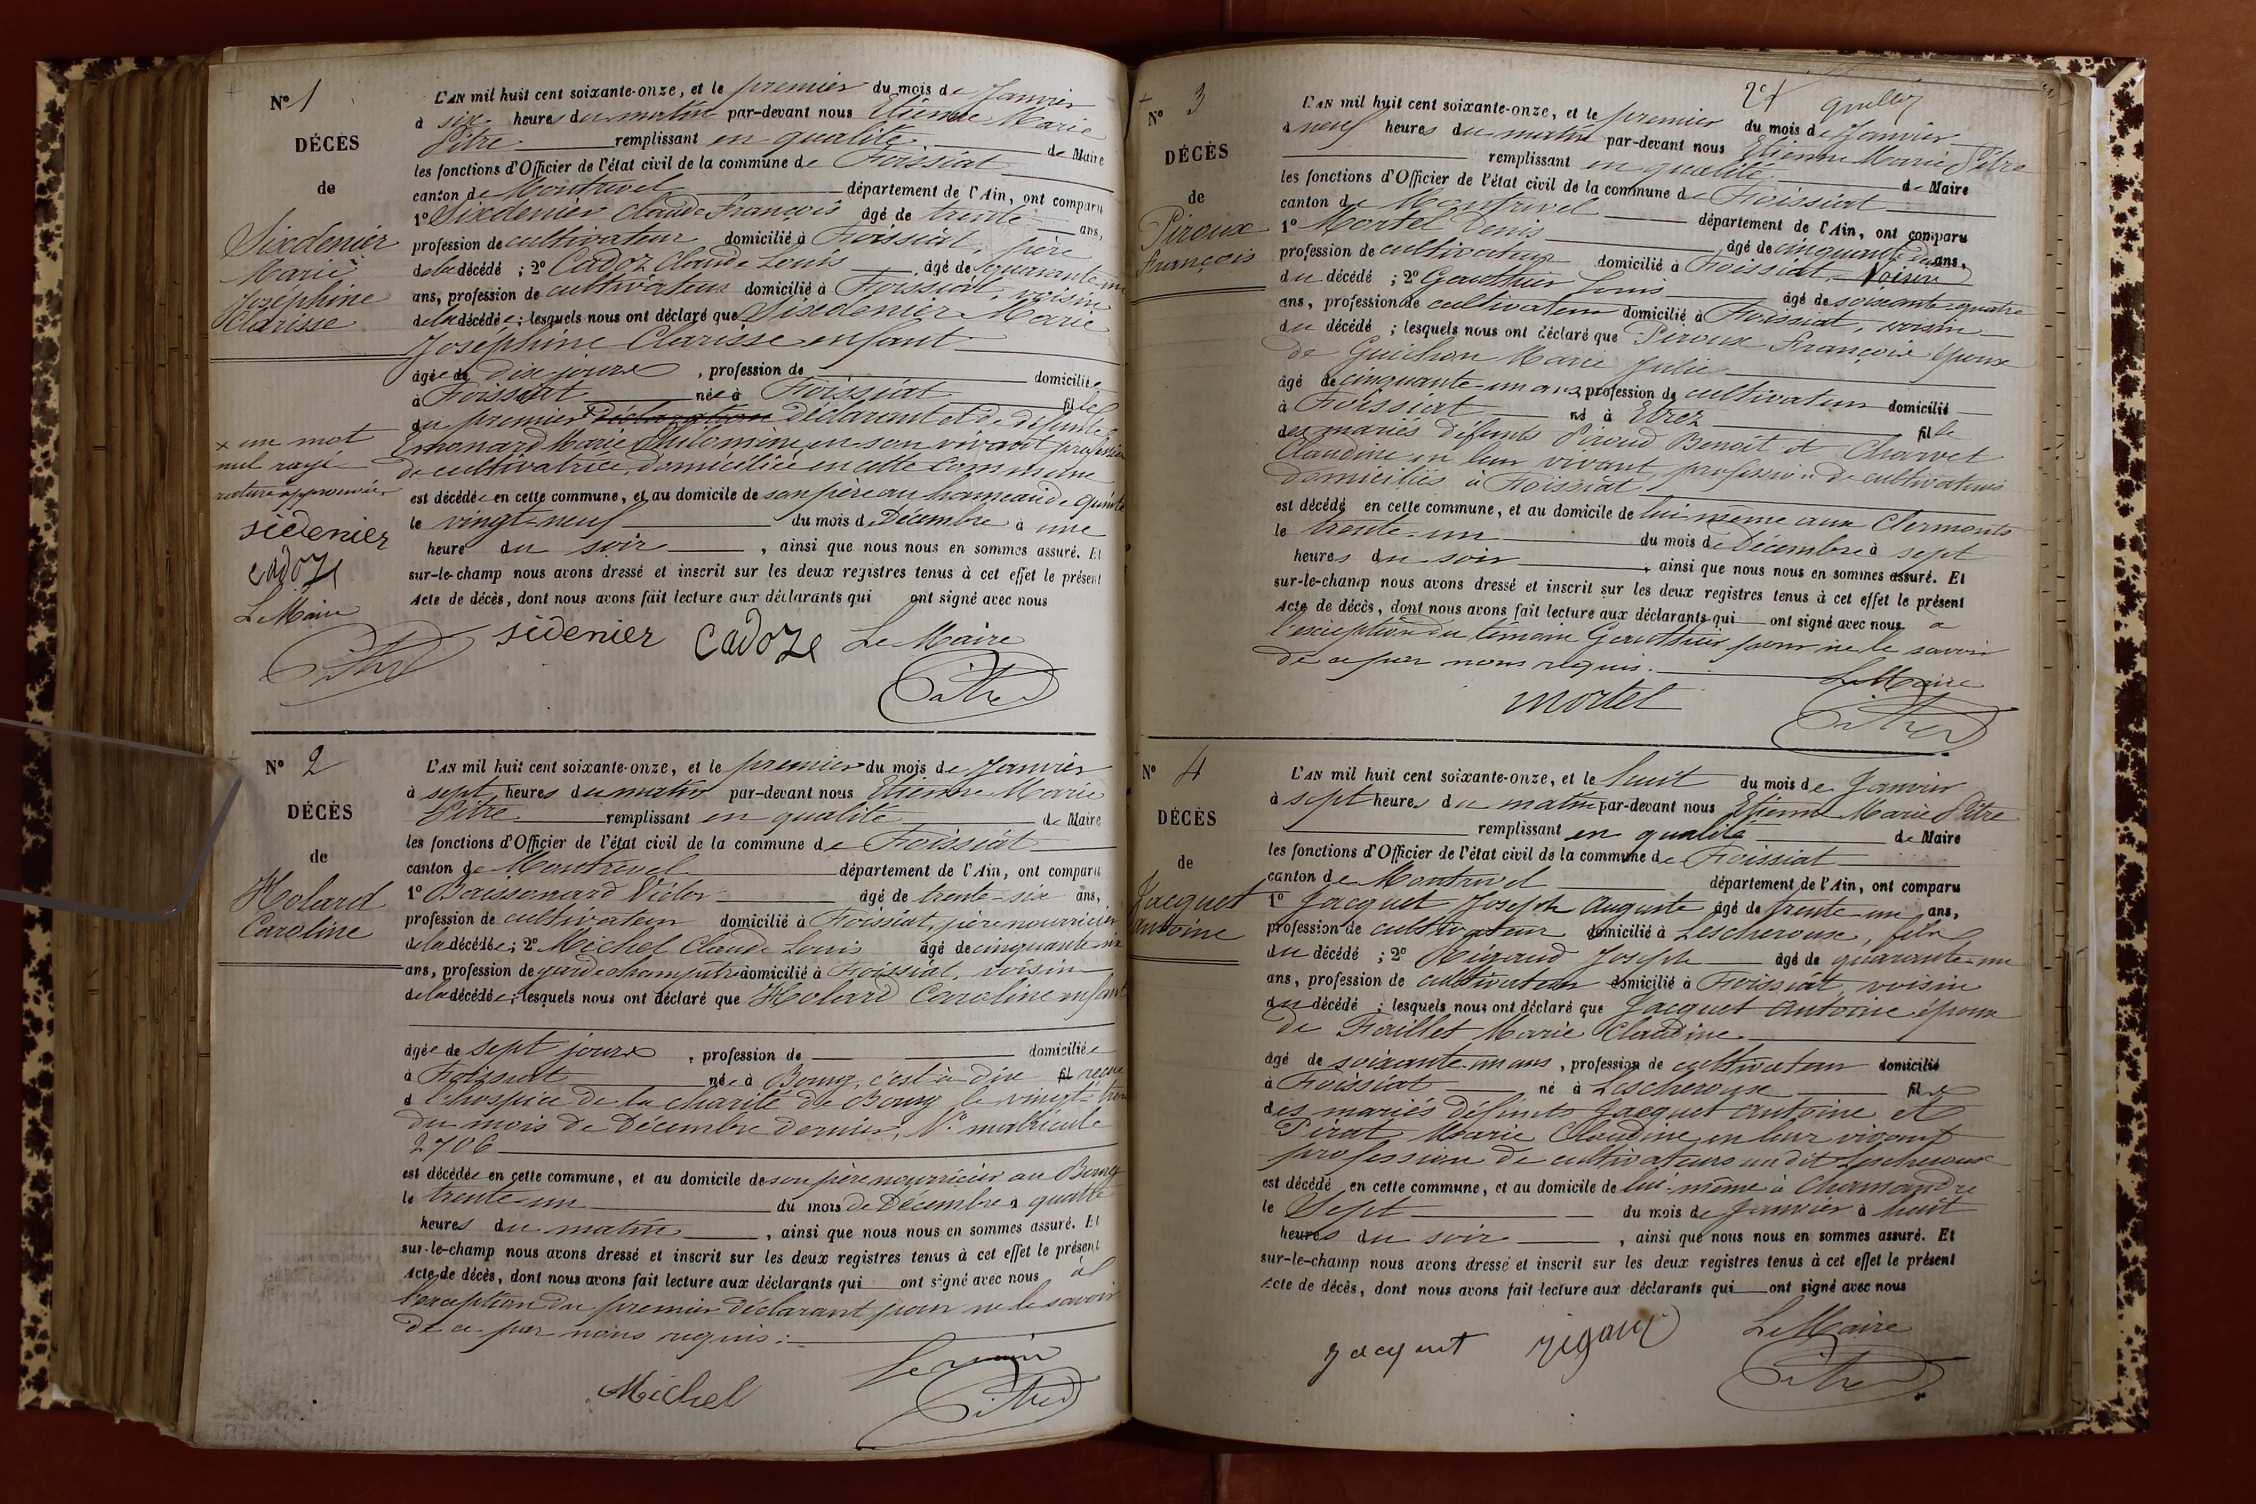 N° 1
DÉCÈS
de
Sixdenier
Marie
Joséphine
Clarisse
L'AN mil huit cent soixante-onze, et le premier du mois de Janvier
à six heures du matin par-devant nous Etienne Marie
Pitre remplissant en qualité de Maire
les fonctions d'Officier de l'état civil de la commune de Foissiat
canton de Montrevel département de l'Ain, ont comparu
1° Sixdenier Claude François âgé de trente ans,
profession de cultivateur domicilié à Foissiat, père
de la décédée ; 2° Cadoz Claude Louis âgé de quarante-un
ans, profession de cultivateur domicilié à Foissiat, voisin
de la décédée ; lesquels nous ont déclaré que Sixdenier Marie
Joséphine Clarisse enfant
âgée de dix jours, profession de domiciliée
à Foissiat née à Foissiat fille
du premier déclaration déclarant et de défunte
Marie Philomène en son vivant profession
de cultivatrice, domiciliée en cette commune
× un mot
nul rayé
rature approuvée
est décédée en cette commune, et au domicile de son père au hameau de
le vingt-neuf du mois de Décembre à une
heure du soir, ainsi que nous nous en sommes assuré. Et
sur-le-champ nous avons dressé et inscrit sur les deux registres tenus à cet effet le présent
Acte de décès, dont nous avons fait lecture aux déclarants qui ont signé avec nous
sidenier
cadoze
Le Maire
Pitre
sidenier cadoze Le Maire
Pitre
N° 2
DÉCÈS
de
Holard
Caroline
L'AN mil huit cent soixante-onze, et le premier du mois de Janvier
à sept heures du matin par-devant nous Etienne Marie
Pitre remplissant en qualité de Maire
les fonctions d'Officier de l'état civil de la commune de Foissiat
canton de Montrevel département de l'Ain, ont comparu
1° Baissonard Victor âgé de trente-six ans,
profession de cultivateur domicilié à Foissiat, père nourricier
de la décédée ; 2° Michel Claude Louis âgé de cinquante-un
ans, profession de garde champêtre domicilié à Foissiat, voisin
de la décédée ; lesquels nous ont déclaré que Holard Caroline enfant
âgée de sept jours, profession de domiciliée
à Foissiat née à Bourg, c'est à dire fil
à l'hospice de la charité de Bourg le vingt-trois
du mois de Décembre dernier, N° matricule
2706
est décédée en cette commune, et au domicile de son père nourricier au Bourg
le trente-un du mois de Décembre à quatre
heures du matin, ainsi que nous nous en sommes assuré. Et
sur-le-champ nous avons dressé et inscrit sur les deux registres tenus à cet effet le présent
Acte de décès, dont nous avons fait lecture aux déclarants qui ont signé avec nous à
l'exception du premier déclarant pour ne le savoir
de ce par nous requis :
Michel Le maire
Pitre
N° 3
DÉCÈS
de
Piroux
François
L'AN mil huit cent soixante-onze, et le premier du mois de Janvier
à neuf heures du matin par-devant nous Etienne Marie Pitre
remplissant en qualité de Maire
les fonctions d'Officier de l'état civil de la commune de Foissiat
canton de Montrevel département de l'Ain, ont comparu
1° Mortel Denis âgé de cinquante-deux ans,
profession de cultivateur domicilié à Foissiat voisin
du décédé ; 2° Gauthier Louis âgé de soixante-quatre
ans, profession de cultivateur domicilié à Foissiat, voisin
du décédé ; lesquels nous ont déclaré que Piroux François époux
de Guichon Marie Julie
âgé de cinquante-un ans, profession de cultivateur domicilié
à Foissiat né à Etrez fils
des mariés défunts Piroud Benoît et Charvet
Claudine en leur vivant profession de cultivateurs
domiciliés à Foissiat
est décédé en cette commune, et au domicile de lui même aux Clermonts
le trente-un du mois de Décembre à sept
heures du soir, ainsi que nous nous en sommes assuré. Et
sur-le-champ nous avons dressé et inscrit sur les deux registres tenus à cet effet le présent
Acte de décès, dont nous avons fait lecture aux déclarants qui ont signé avec nous à
l'exception du témoin Gauthier pour ne le savoir
de ce par nous requis.
mortel Le Maire
Pitre
N° 4
DÉCÈS
de
Jacquet
Antoine
L'AN mil huit cent soixante-onze, et le huit du mois de Janvier
à sept heures du matin par-devant nous Etienne Marie Pitre
remplissant en qualité de Maire
les fonctions d'Officier de l'état civil de la commune de Foissiat
canton de Montrevel département de l'Ain, ont comparu
1° Jacquet Joseph Auguste âgé de trente-un ans,
profession de cultivateur domicilié à Lescheroux, fils
du décédé ; 2° Rigaud Joseph âgé de quarante-un
ans, profession de cultivateur domicilié à Foissiat, voisin
du décédé ; lesquels nous ont déclaré que Jacquet Antoine époux
de Faillet Marie Claudine
âgé de soixante-un ans, profession de cultivateur domicilié
à Foissiat né à Lescheroux fils
des mariés défunts Jacquet Antoine et
Pirat Marie Claudine en leur vivant
profession de cultivateurs au dit Lescheroux
est décédé en cette commune, et au domicile de lui-même à Chamandre
le Sept du mois de Janvier à huit
heures du soir, ainsi que nous nous en sommes assuré. Et
sur-le-champ nous avons dressé et inscrit sur les deux registres tenus à cet effet le présent
Acte de décès, dont nous avons fait lecture aux déclarants qui ont signé avec nous
jacquet rigaud Le Maire
Pitre